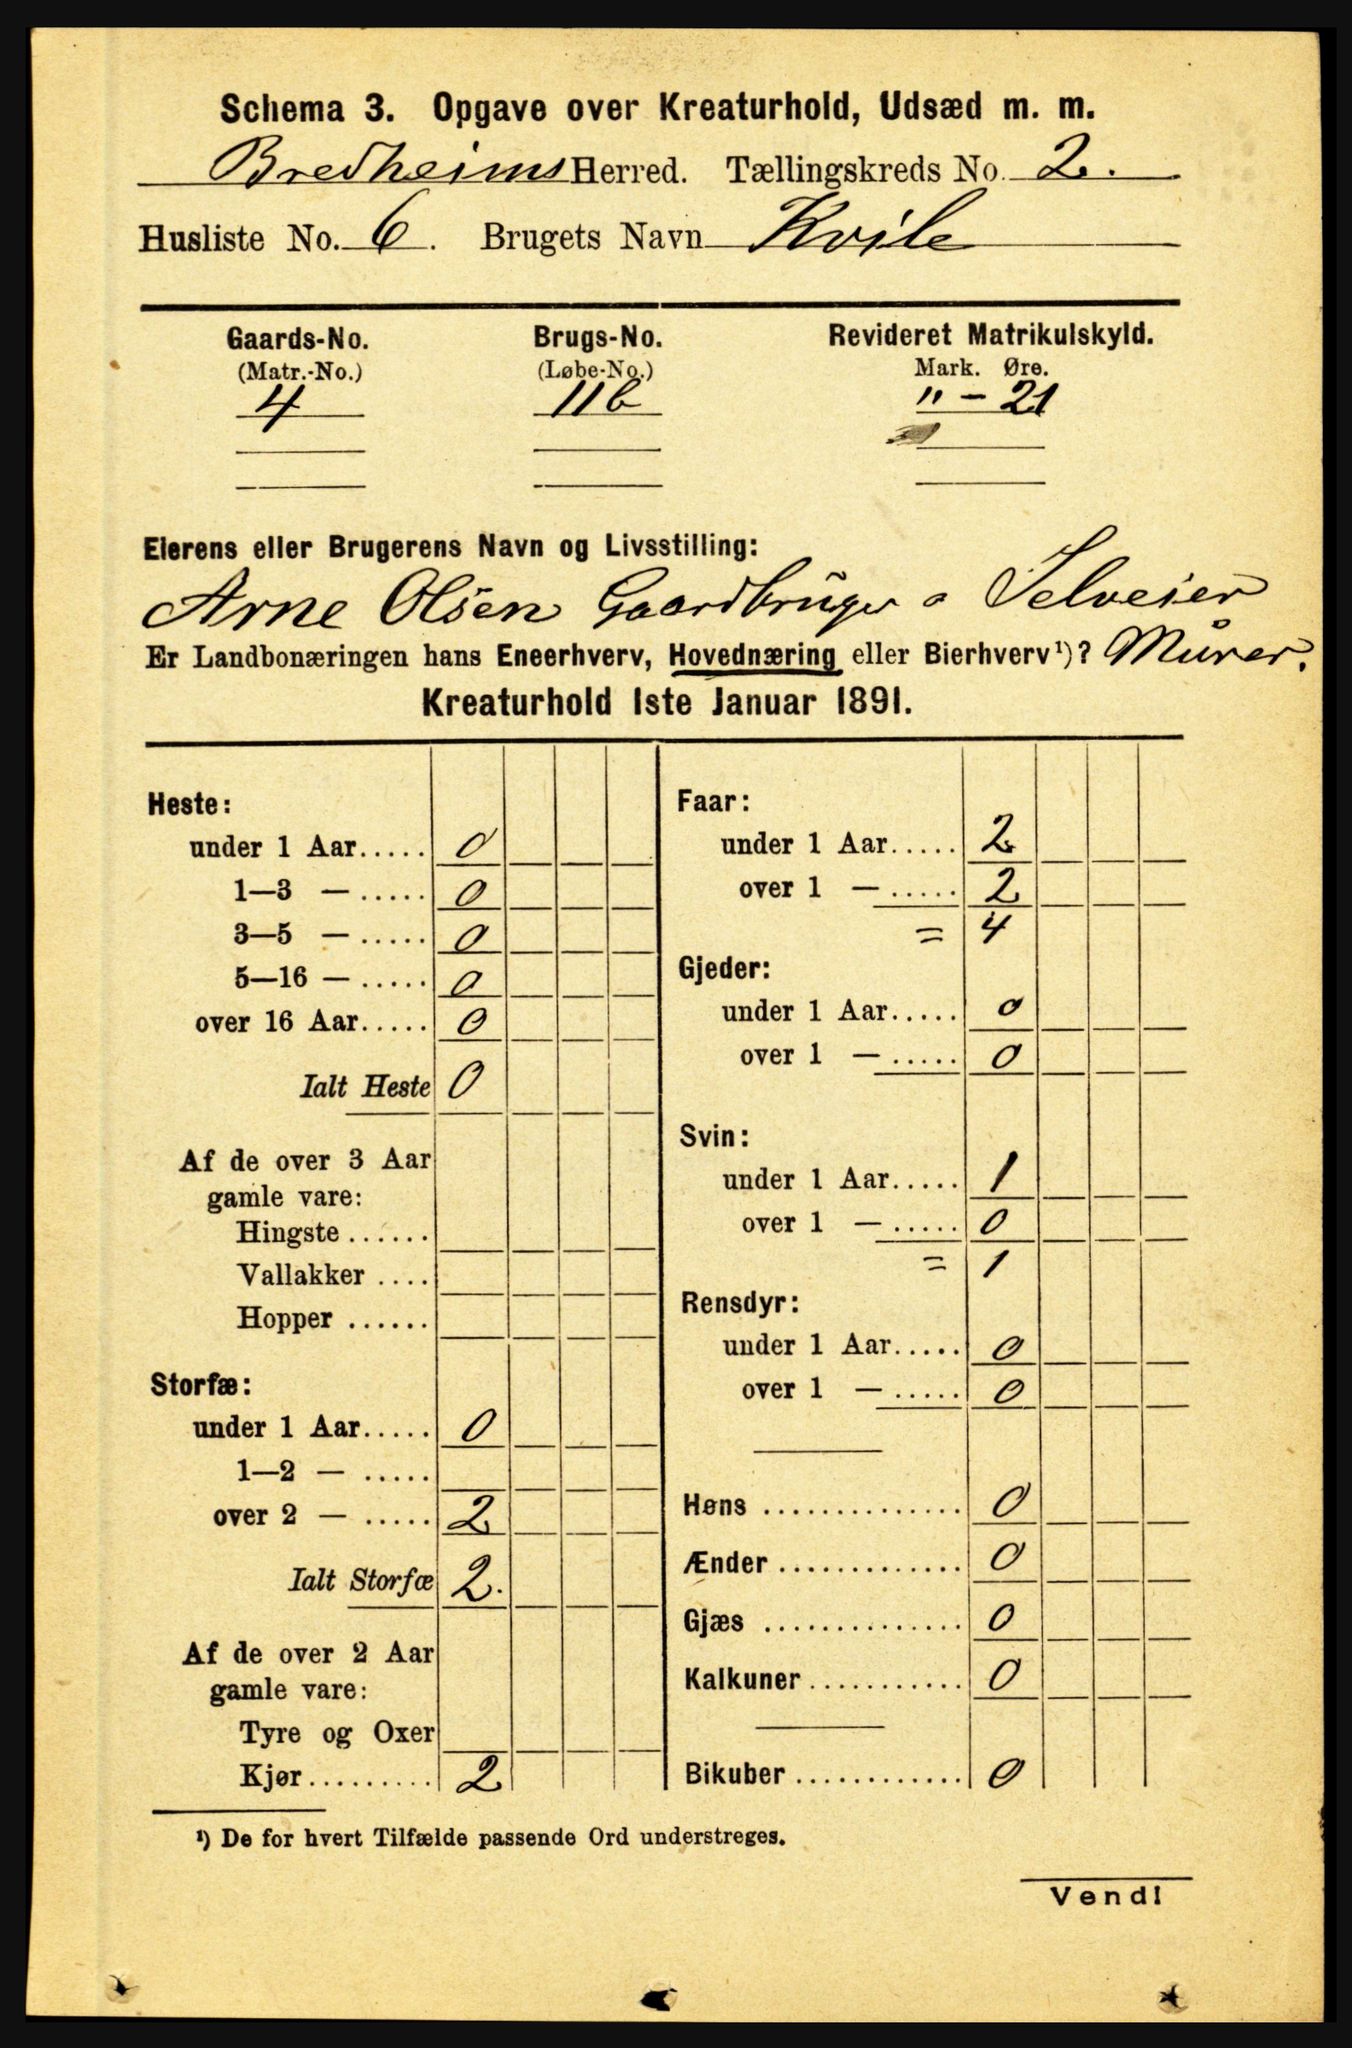 Schema 3. Opgave over Kreaturhold, Udsæd m. m.
Bredheims Herred. Tællingskreds No. 2.
Husliste No. 6. Brugets Navn Kvile
Gaards-No. Brugs-No. Revideret Matrikulskyld.
(Matr.-No.) (Løbe-No.) Mark. Øre.
4 11b " - 21
Eierens eller Brugerens Navn og Livsstilling:
Arne Olsen Gaardbruger o Selveier
Er Landbonæringen hans Eneerhverv, Hovednæring eller Bierhverv¹)? Murer.
Kreaturhold 1ste Januar 1891.
Heste:
under 1 Aar..... 0
1—3 — ..... 0
3—5 — ..... 0
5—16 — ..... 0
over 16 Aar..... 0
Ialt Heste 0
Af de over 3 Aar
gamle vare:
Hingste ......
Vallakker ....
Hopper ......
Storfæ:
under 1 Aar..... 0
1—2 — .....
over 2 — ..... 2
Ialt Storfæ 2.
Af de over 2 Aar
gamle vare:
Tyre og Oxer
Kjør......... 2
Faar:
under 1 Aar..... 2
over 1 — ..... 2
= 4
Gjeder:
under 1 Aar..... 0
over 1 — ..... 0
Svin:
under 1 Aar..... 1
over 1 — ..... 0
= 1
Rensdyr:
under 1 Aar..... 0
over 1 — ..... 0
Høns .............. 0
Ænder ............. 0
Gjæs .............. 0
Kalkuner ............ 0
Bikuber ............. 0
¹) De for hvert Tilfælde passende Ord understreges.
Vend!